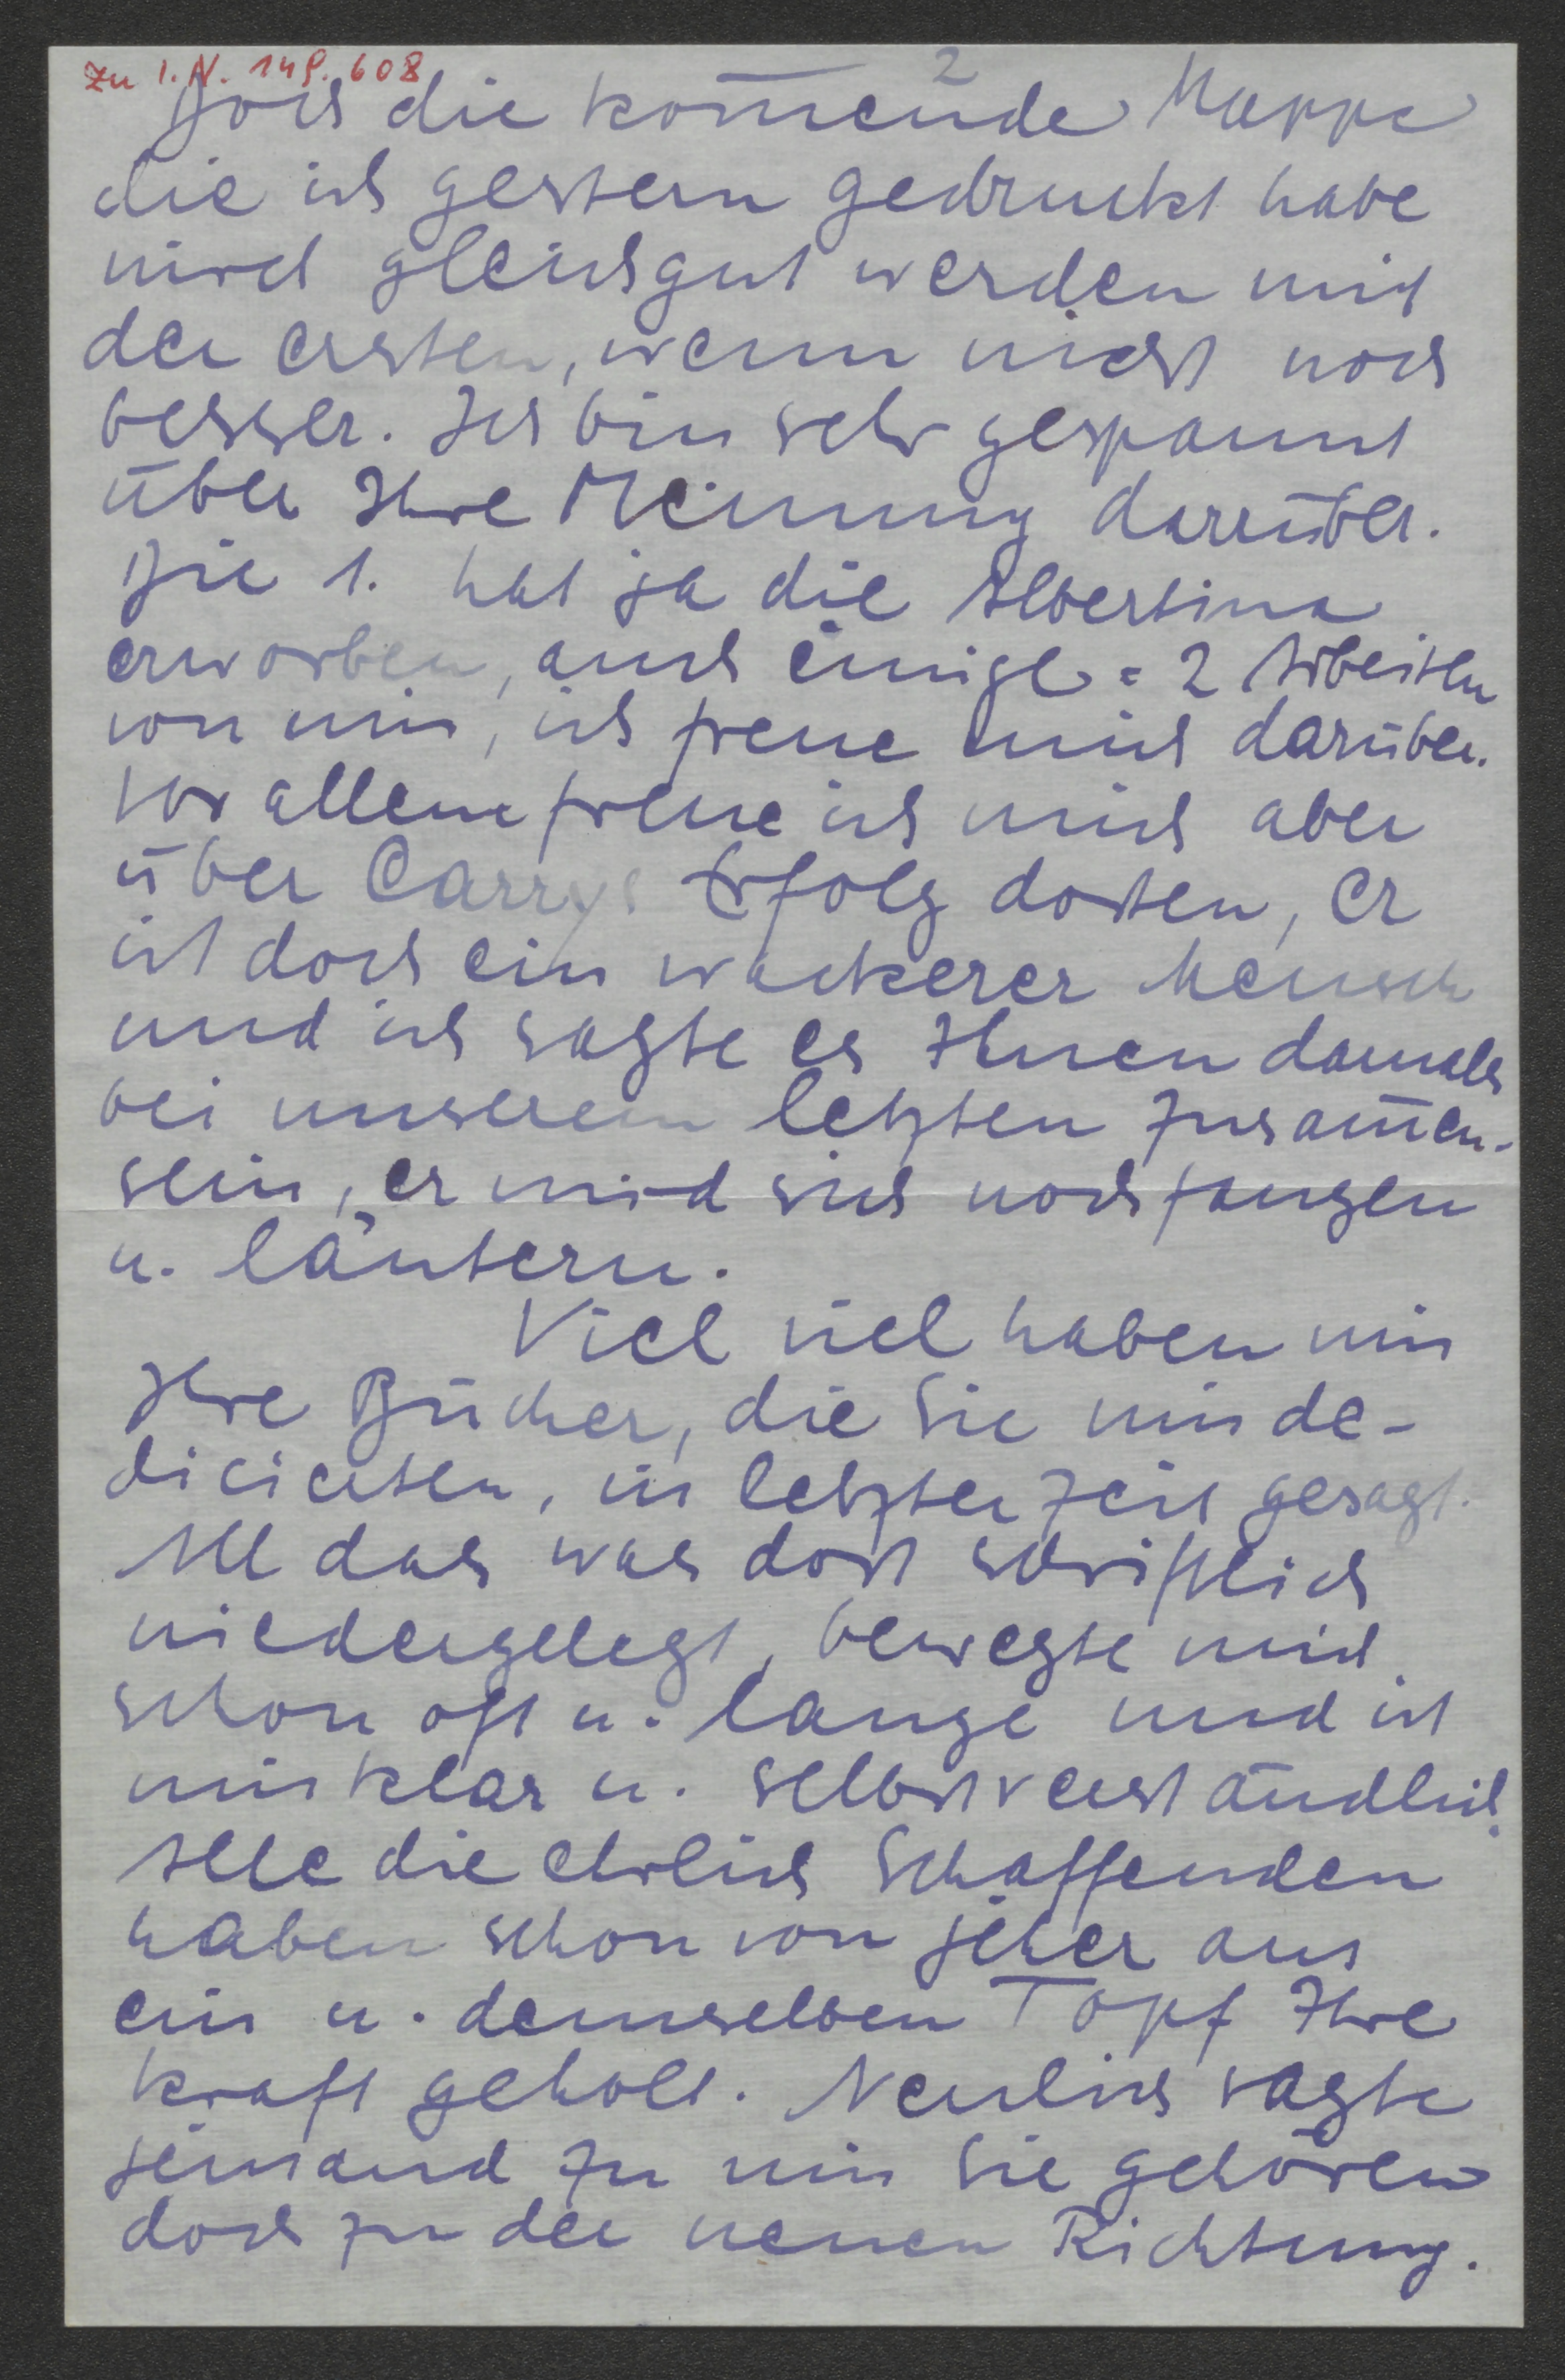 zu I.N. 148.608
2
Doch die kom̄ende Mappe
die ich gestern gedruckt habe
wird gleichgut werden mit
der ersten, wenn nicht noch
besser. Ich bin sehr gespannt
über Ihre Meinung darüber.
Die 1. hat ja die Albertina
erworben, auch einige = 2 Arbeiten
von mir, ich freue mich darüber.
Vor allem freue ich mich aber
über Carrys Erfolg dorten, er
ist doch ein wackerer Mensch
und ich sagte es Ihnen damals
bei unserem letzten Zusam̄en-
sein, er wird sich noch fangen
u. läutern.
Viel viel haben mir
Ihre Bücher, die Sie mir de-
dicierten, in letzter Zeit gesagt.
All das was dort schriftlich
niedergelegt, bewegte mich
schon oft u. lange und ist
mir klar u. selbstverständlich.
Alle die ehrlich Schaffenden
haben schon von jeher aus
ein u. demselben Topf Ihre
Kraft geholt. Neulich sagte
jemand zu mir Sie gehören
doch zu der neuen Richtung.